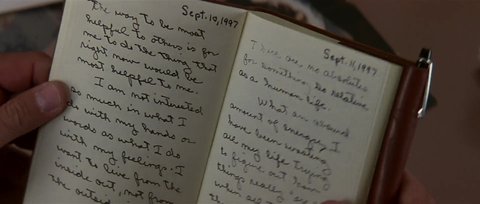 Sept. 10, 1997
The way to be most
helpful to others is for
me to do the thing that
right now would be
most helpful to me.
I am not interested
as much in what I
do with my hands or
words as what I do
with my feelings. I
want to live from the
inside out, not from
the outside
Sept. 11, 1997
There are no absolutes
for something so relative
as a human life.
What an absurd
amount of energy I
have been wasting
all my life trying
to figure out how
things really are,
when all the